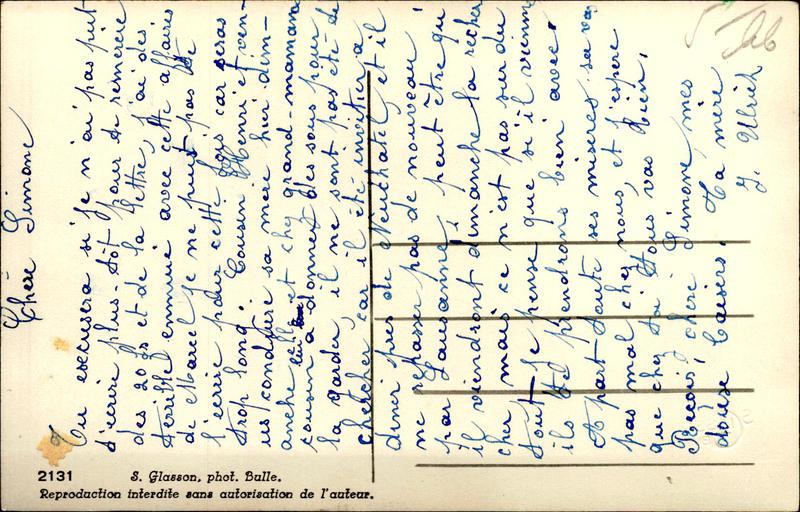 Chère Simone
Tu excusera si je n'ai pas put
t'ecrire plus-tôt pour te remercié
des 20 frs et de la lettre, j'ai des
terrible ennuie avec cette affaires
de Marcel je ne puis pas te
l'ecrire pour cette fois car seras
trop long. Cousin Henri et ven-
us conduire sa mère hier dim-
anche elle et chez grand-maman
cousin a donner des sous pour
la garder, il ne sont pas été te
chercher, car il été inviter à
diner près de Neuchatel et il
ne repasser pas de nouveau
par Lausanne, peut être qui
il viendront dimanche la recher
cher mais ce n'est pas sur du
tout je pense que si il vienne
ils te prendrons bien avec.
A part toute ses misères sa va
pas mal chez nous, et j'espère
que chez toi tous vas bien,
Recois, chère Simone, mes
douse baisers. Ta mère
J. Ulrich
2131 S. Glasson, phot. Bulle.
Reproduction interdite sans autorisation de l'auteur.